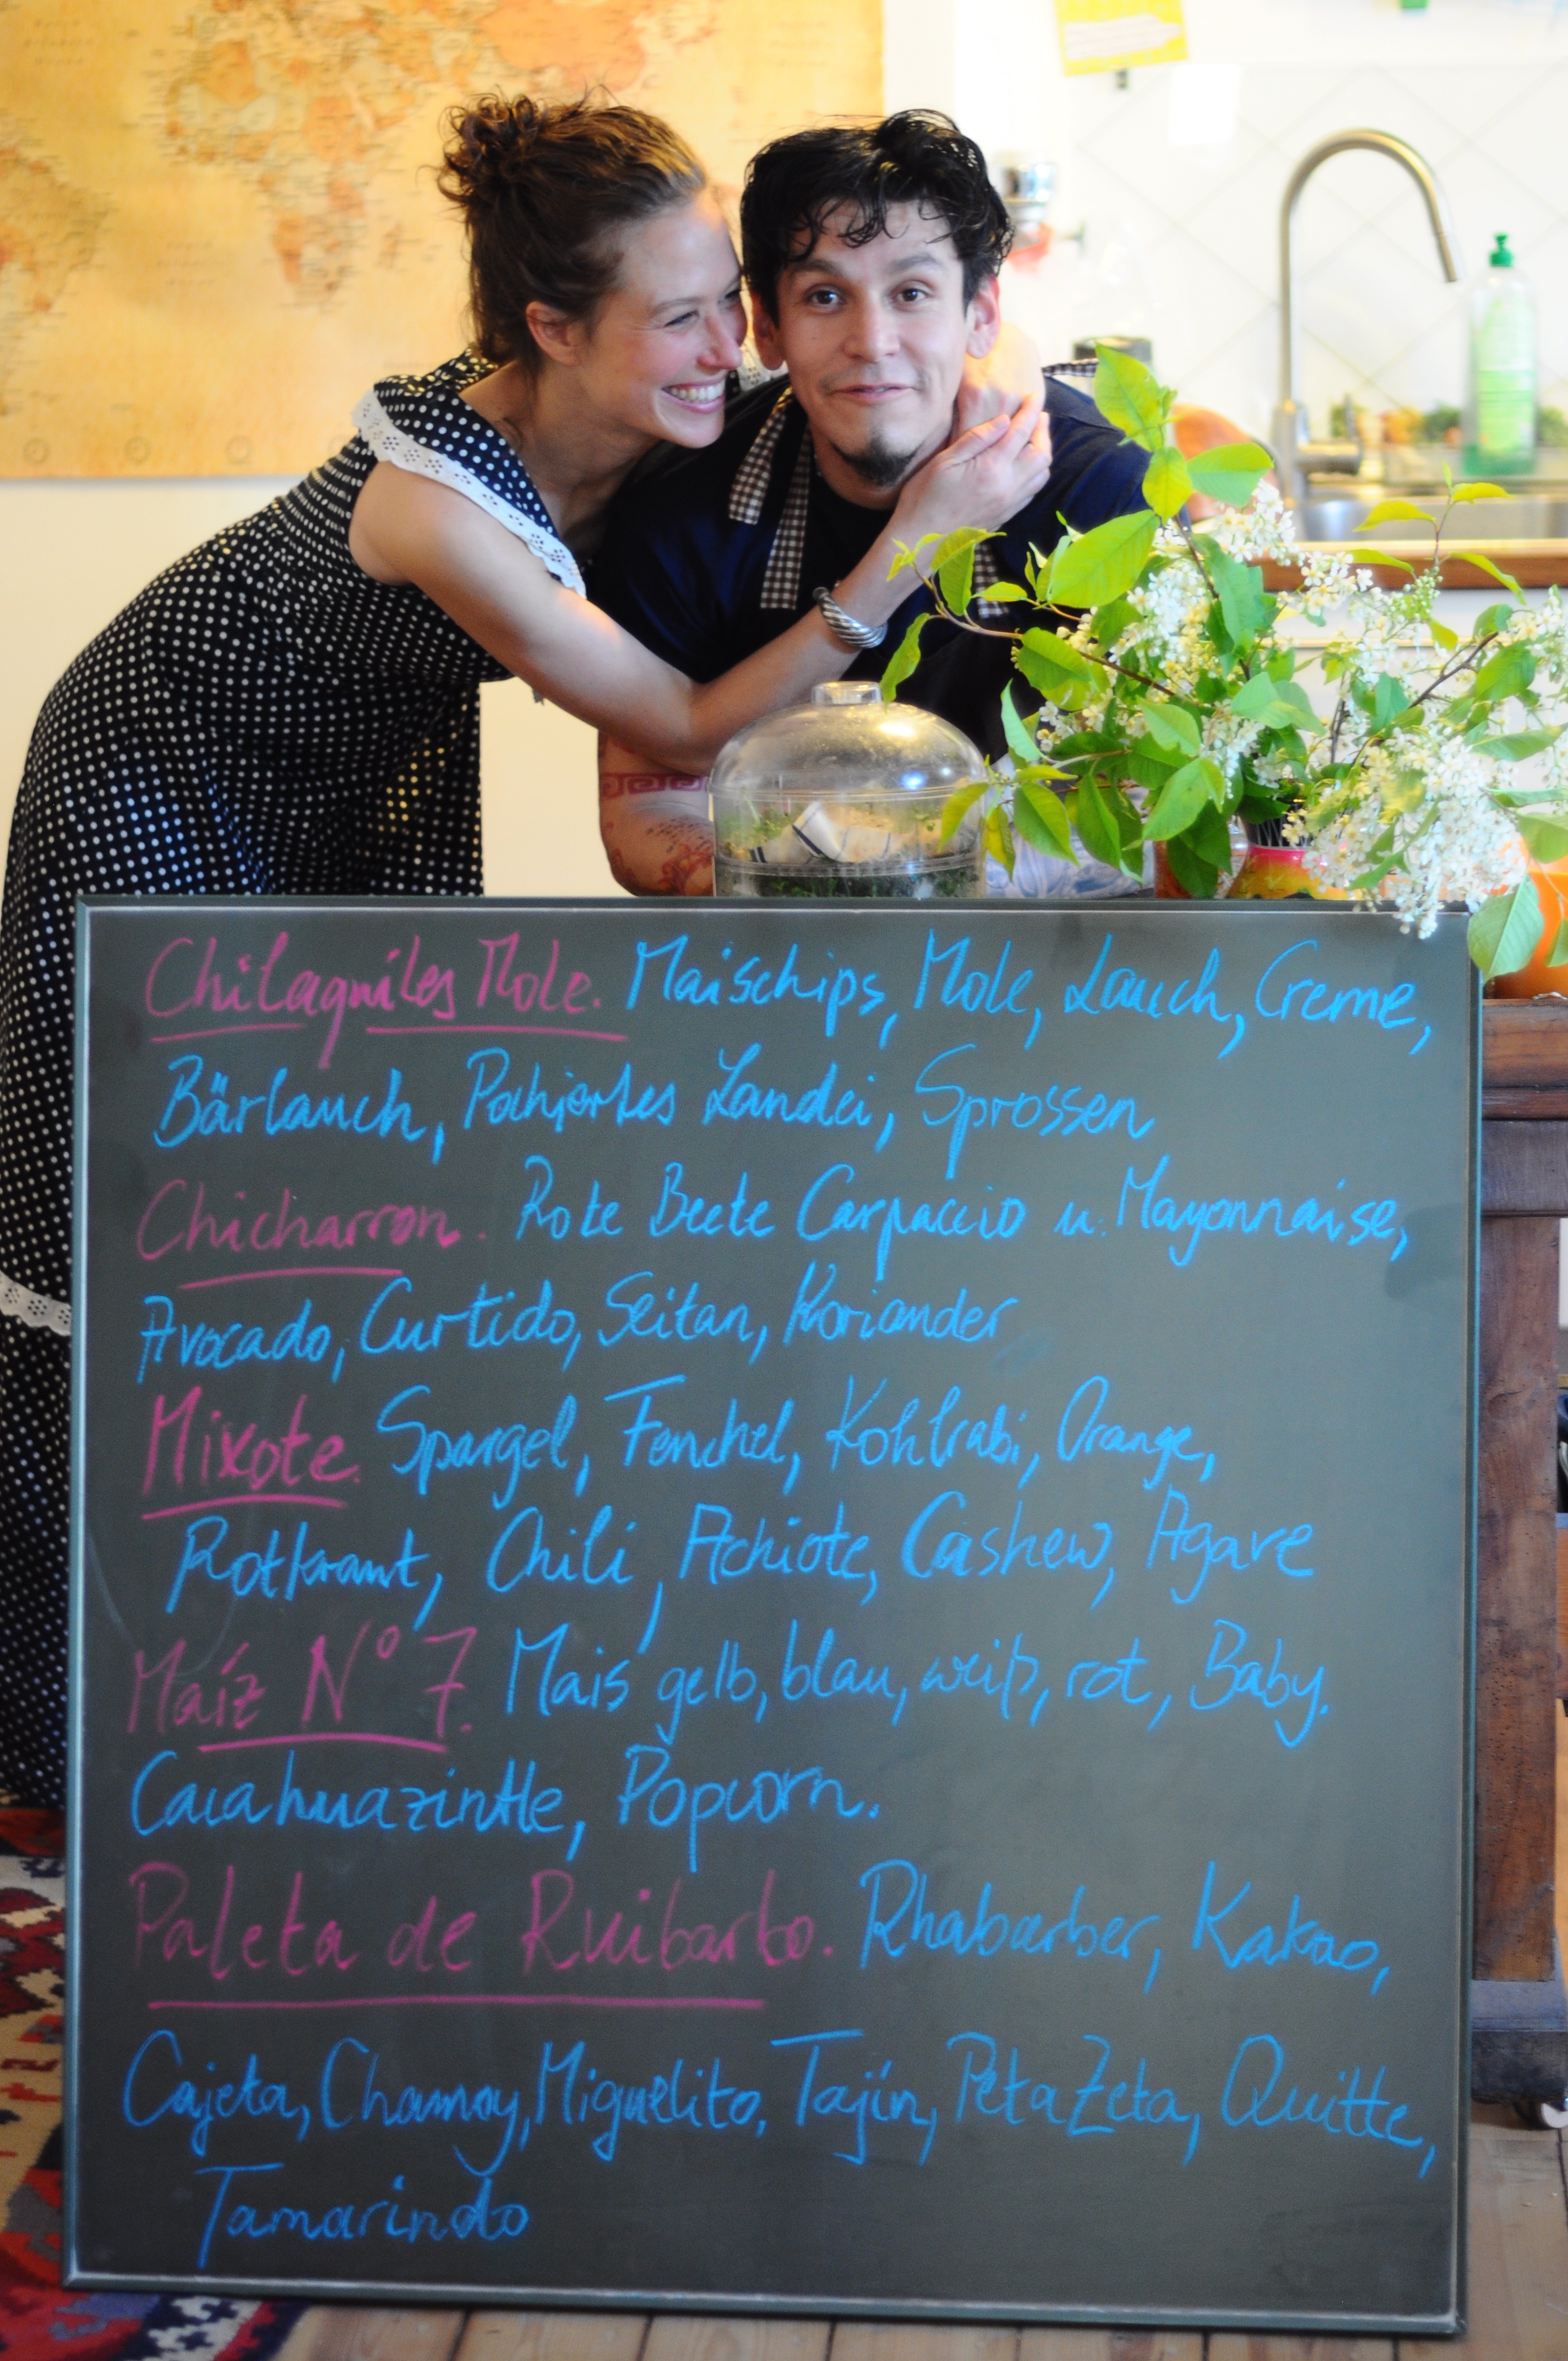 Chilaquiles Mole. Maischips, Mole, Lauch, Creme,
Bärlauch, Pochiertes Landei, Sprossen
Chicharron. Rote Beete Carpaccio u. Mayonnaise,
Avocado, Curtido, Seitan, Koriander
Mixote. Spargel, Fenchel, Kohlrabi, Orange,
Rotkraut, Chili, Achiote, Cashew, Agave
Maíz N° 7. Mais gelb, blau, weiß, rot, Baby.
Cacahuazintle, Popcorn.
Paleta de Ruibarbo. Rhabarber, Kakao,
Cajeta, Chamoy, Miguelito, Tajín, PetaZeta, Quitte,
Tamarindo